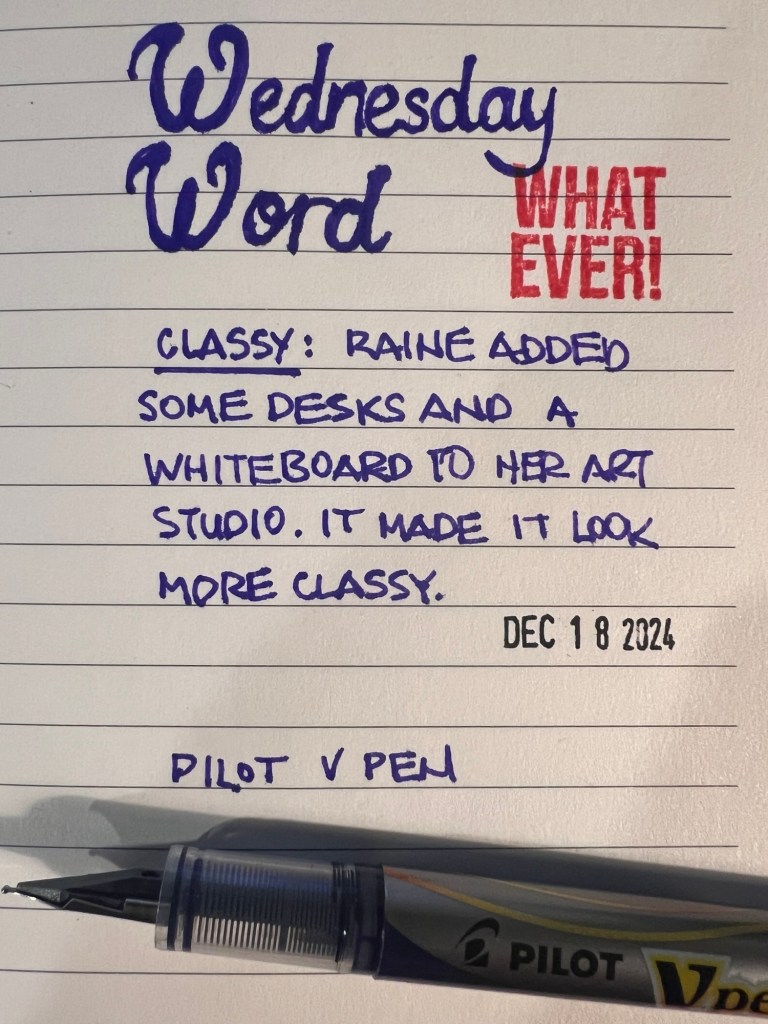 Wednesday
Word
WHAT
EVER!
CLASSY: RAINE ADDED
SOME DESKS AND A
WHITEBOARD TO HER ART
STUDIO. IT MADE IT LOOK
MORE CLASSY.
DEC 18 2024
PILOT V PEN
PILOT Vpe